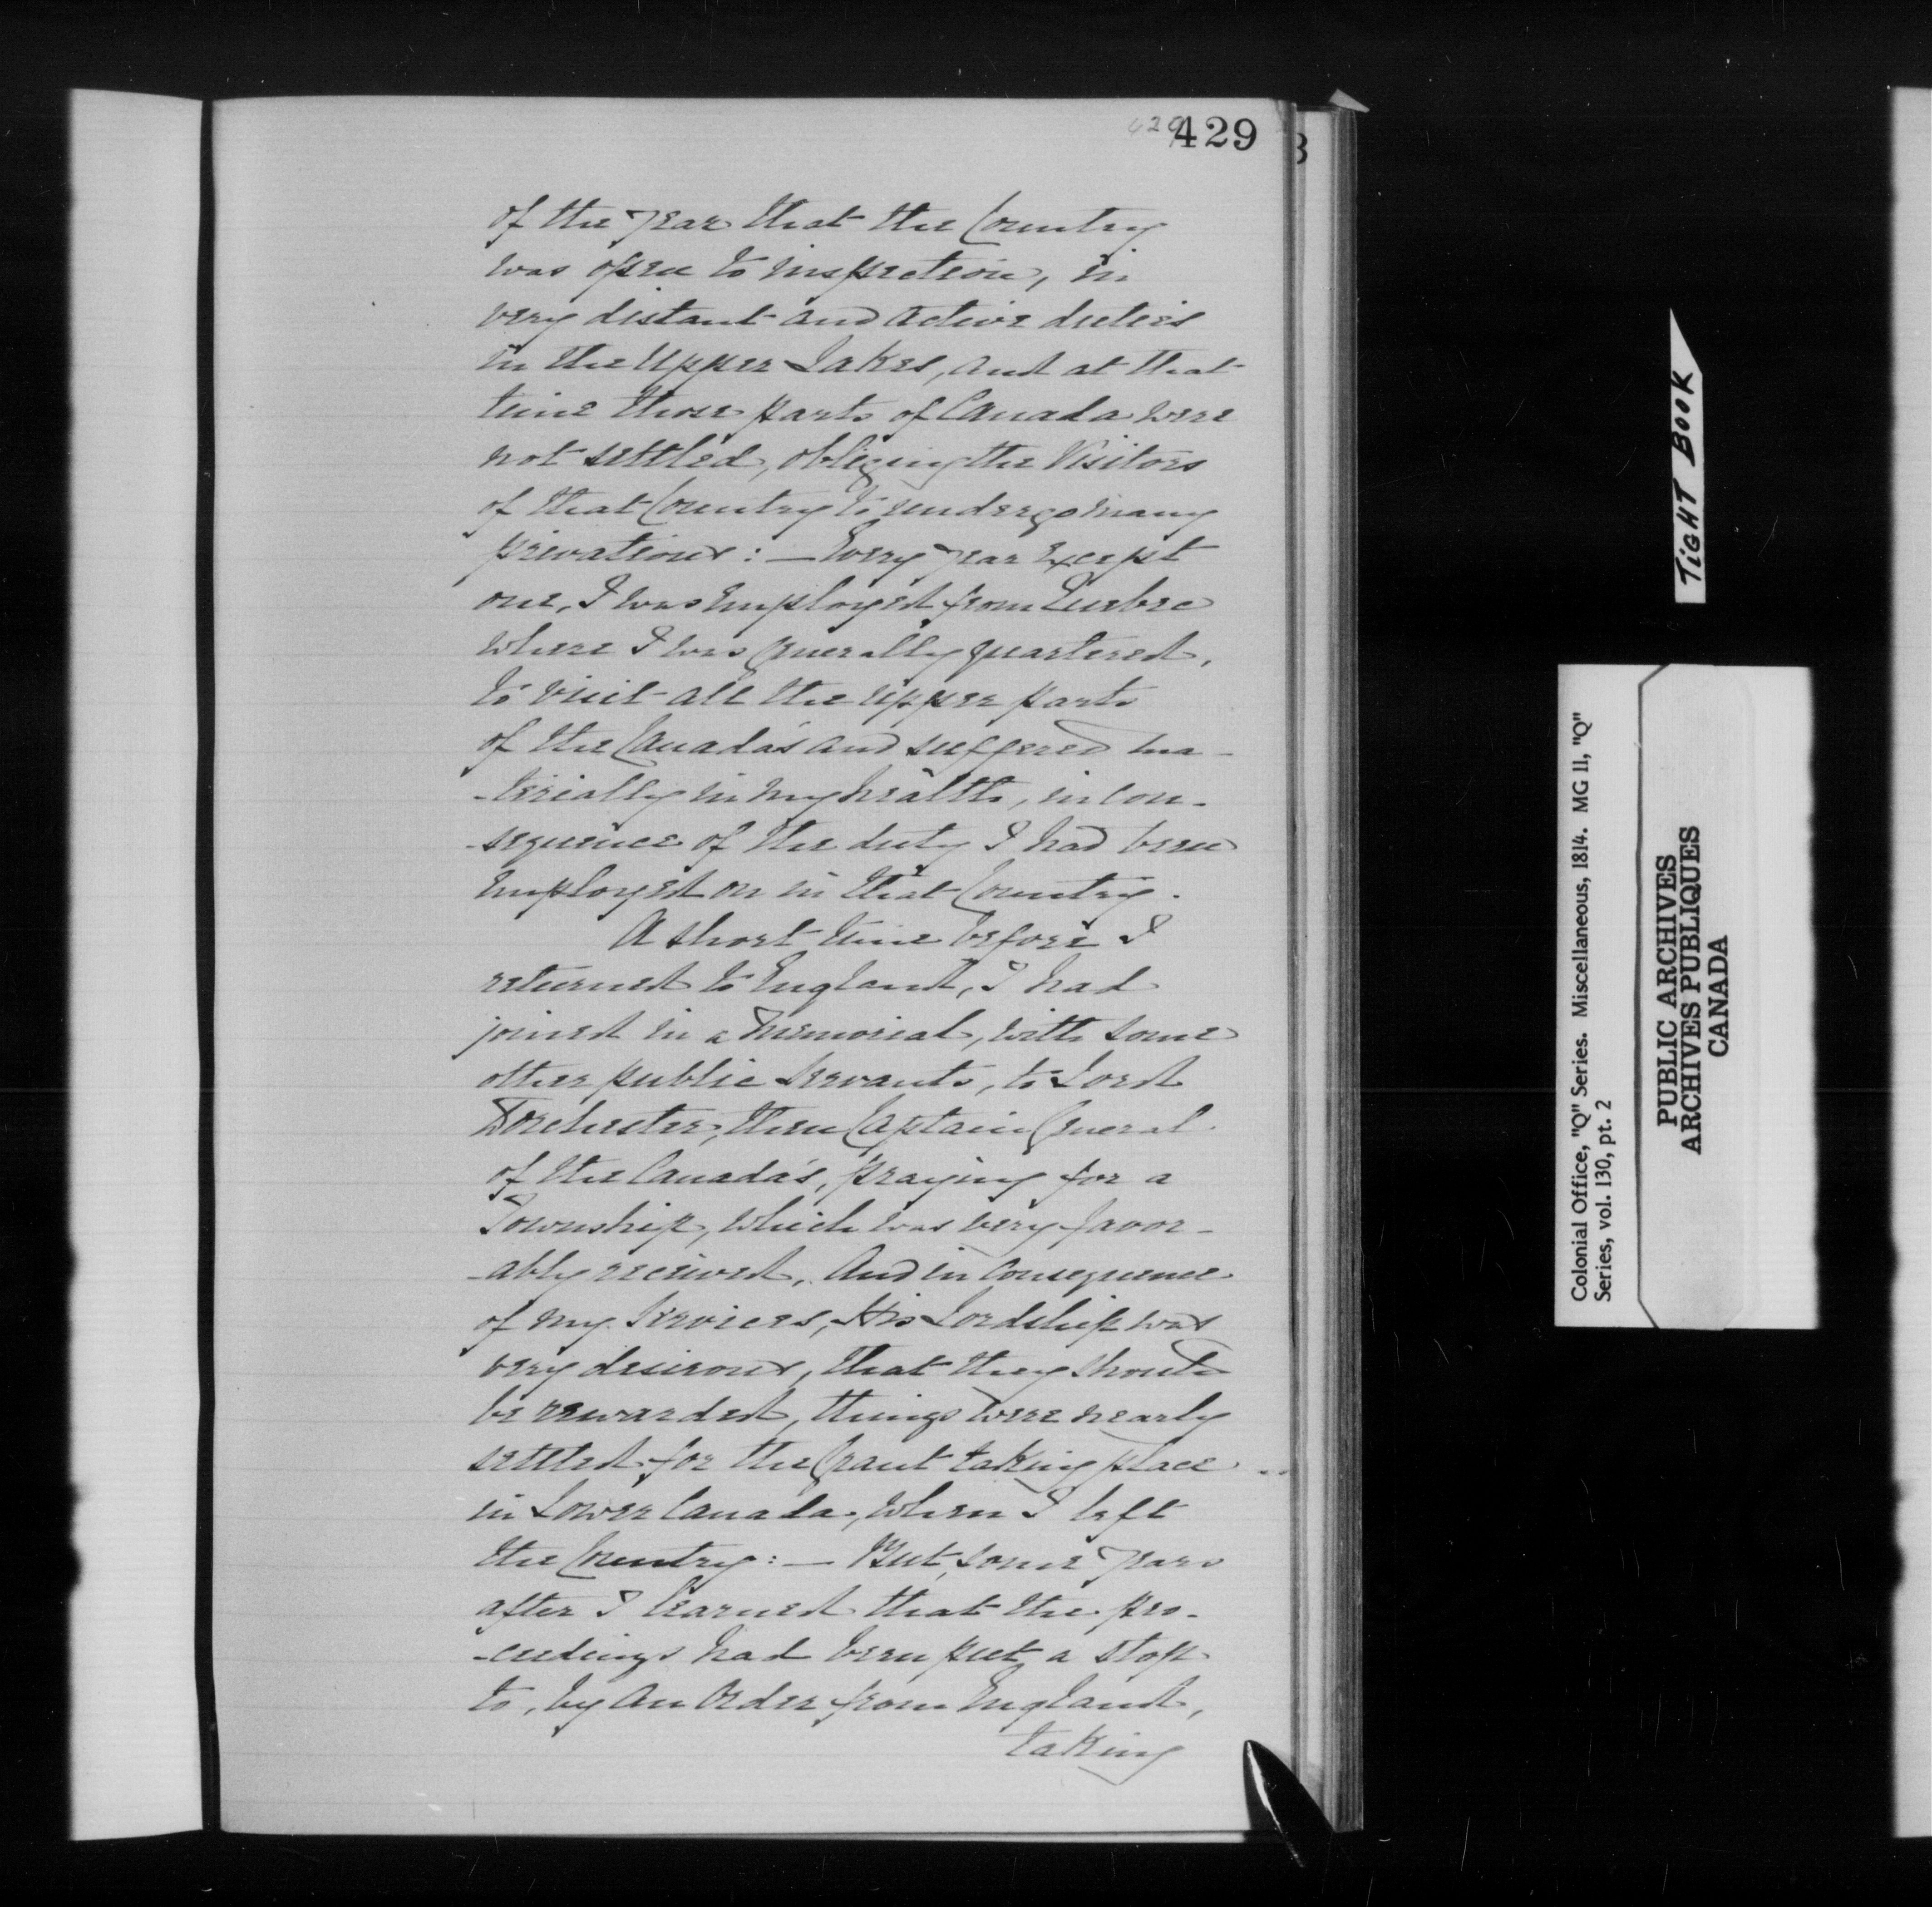 429
429
of the year that the Country
was open to inspection, in
very distant and active duties
in the Upper Lakes, and at that
time those parts of Canada were
not settled, obliging the Visitors
of that Country to undergo many
privations: — Every year except
one, I was employed from Quebec
where I was generally quartered,
to visit all the upper parts
of the Canada's and suffered ma-
-terially in my health, in con-
-sequence of the duty I had been
employed on in that Country.
A short time before I
returned to England, I had
joined in a Memorial, with some
other public Servants, to Lord
Dorchester, then Captain General
of the Canada's, praying for a
Township, which was very favor-
-ably received, And in consequence
of my Services, His Lordship was
very desirous, that they should
be rewarded, things were nearly
settled for the Grant taking place
in Lower Canada, when I left
the Country: — But, some years
after I learned that the pro-
-ceedings had been put a stop
to, by an Order from England,
taking
TIGHT BOOK
Colonial Office, "Q" Series. Miscellaneous, 1814. MG 11, "Q"
Series, vol. 130, pt. 2
PUBLIC ARCHIVES
ARCHIVES PUBLIQUES
CANADA